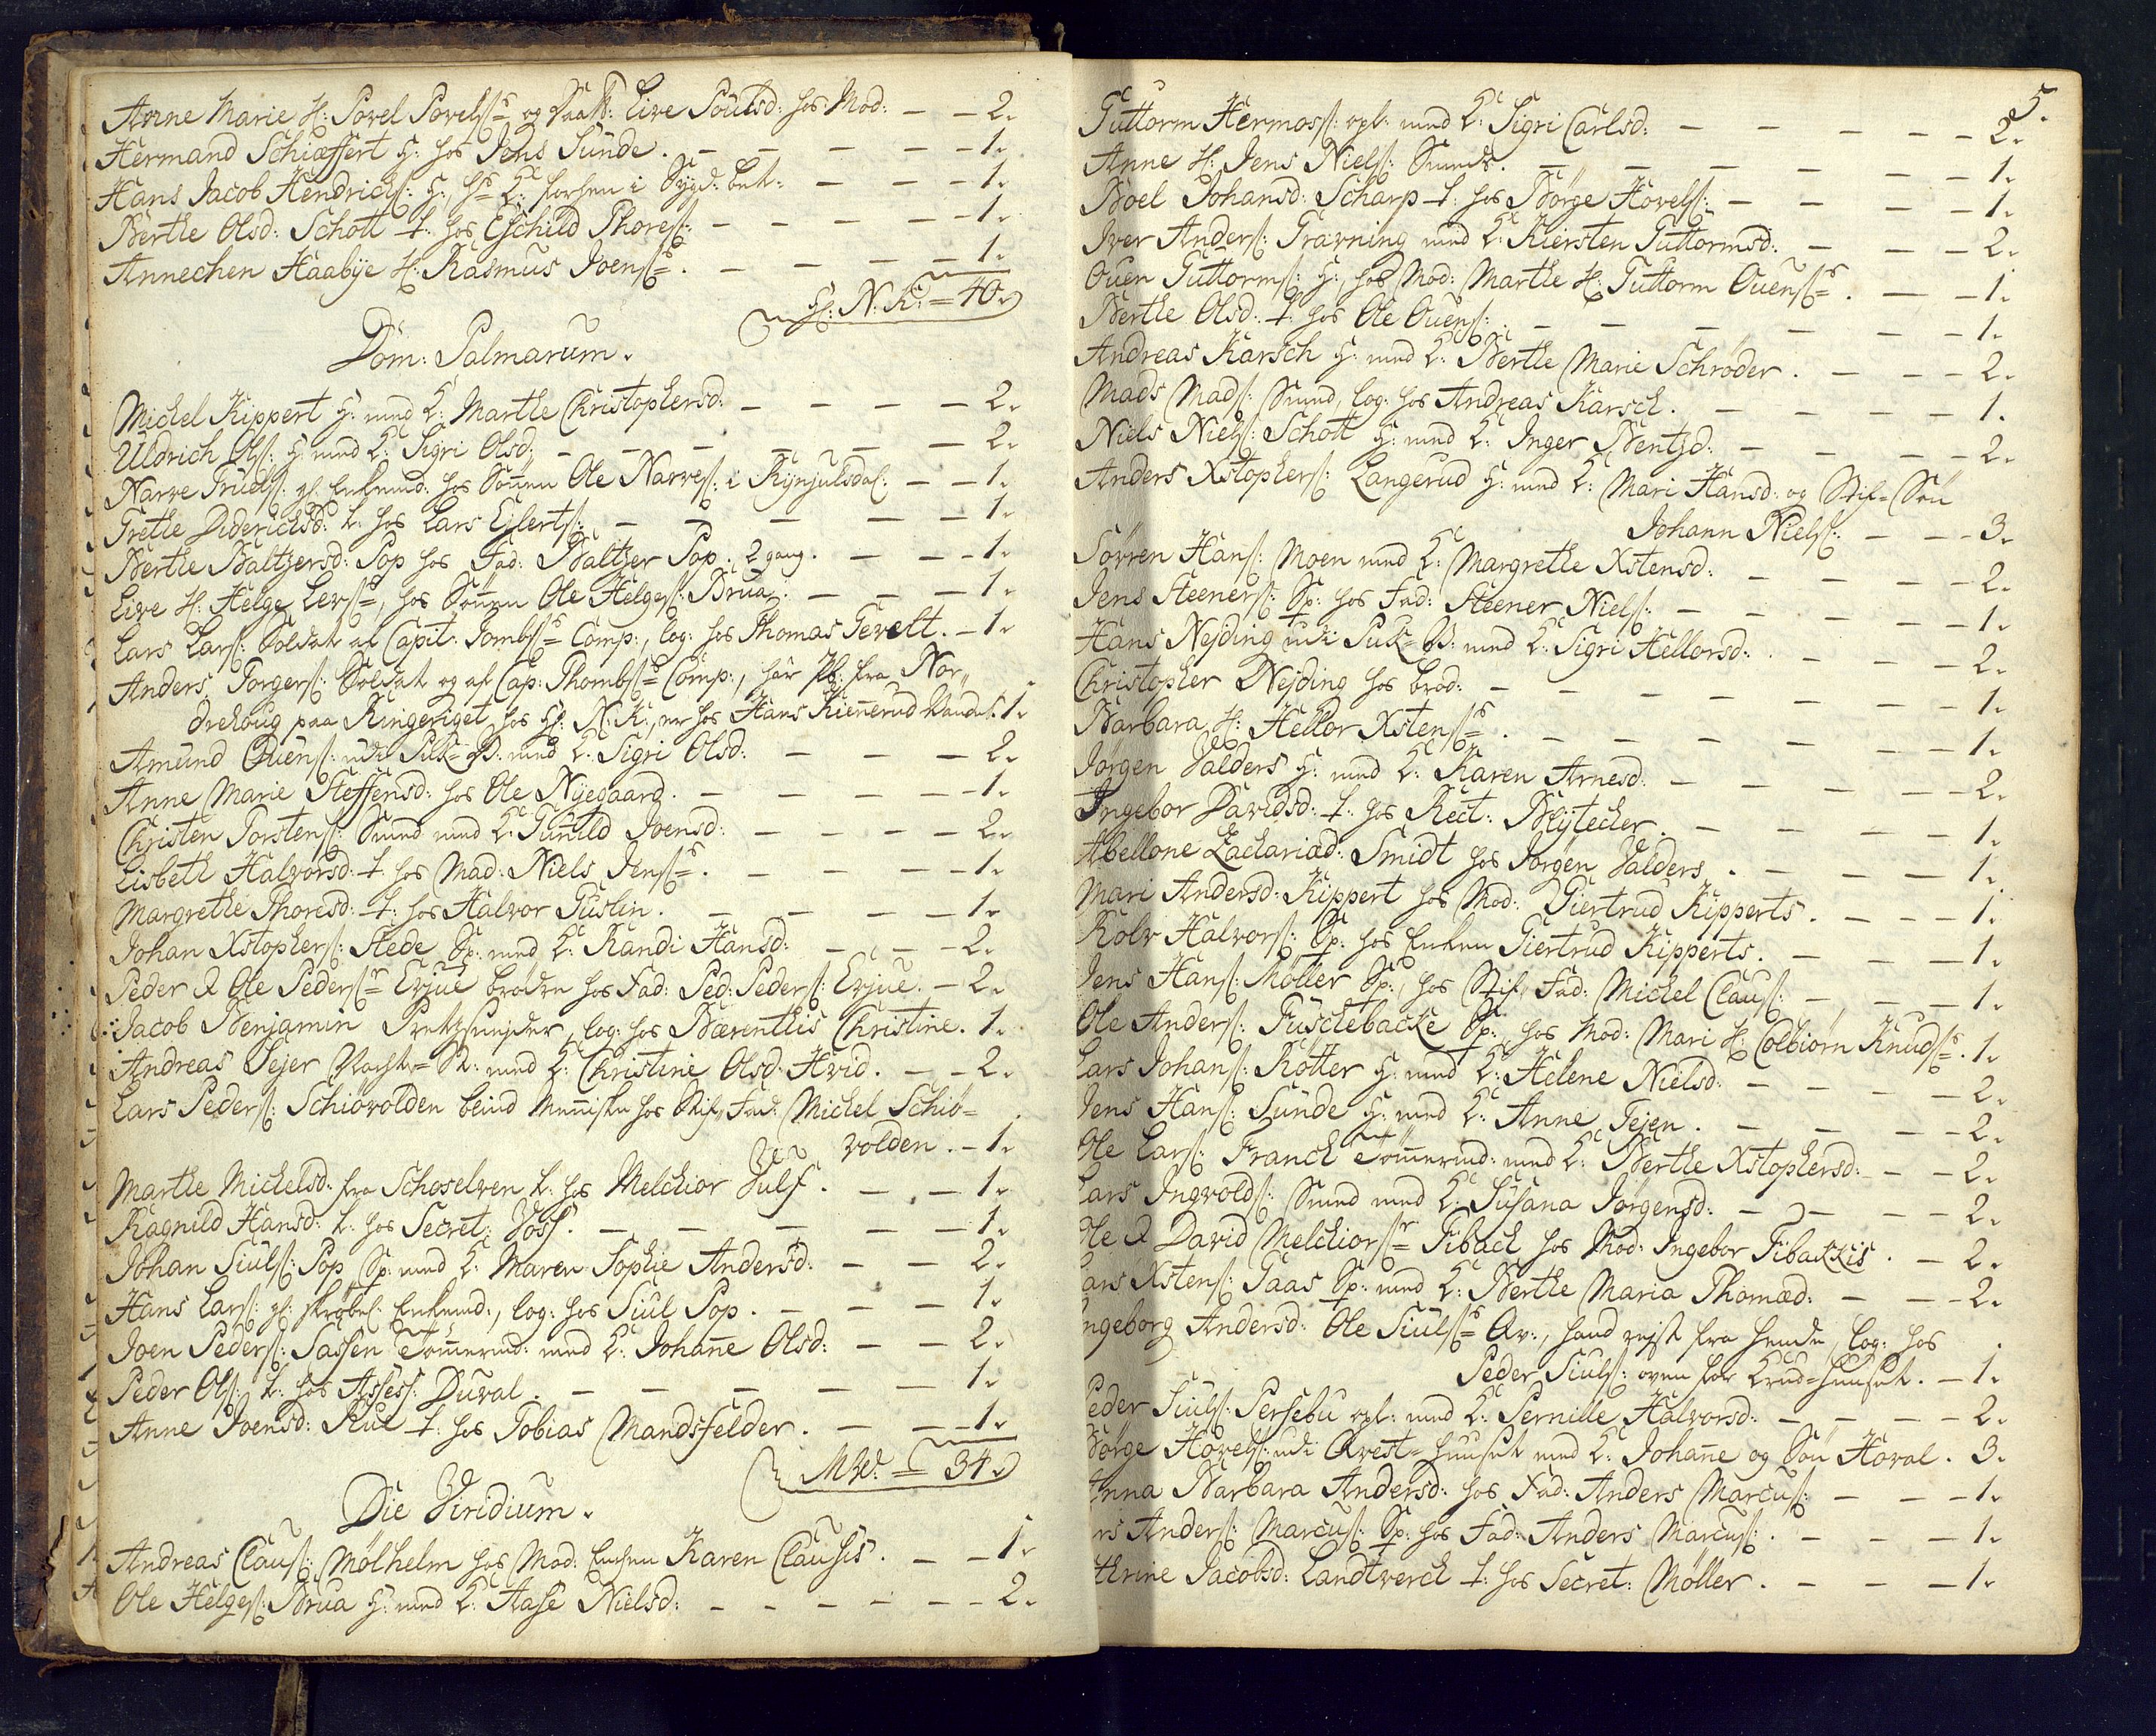 Anne Marie H: Povel Povelſ= og Live Poulsd: hos Mod: — — 2.
Hermand Schiæffert G: hos Jens Sunde. — — — — 1.
Hans Jacob Hendrichſ: G: i Sygd: — — — 1.
Berthe Olsd: Schott t: hos Eschild Thoreſ: — — — — 1.
Annechen Haabye H: Rasmus Joenſ=. — — — — 1.
H: N: K: = 40.
Dom: Palmarum.
Michel Kippert G: med K: Marthe Christophersd: — — — — 2.
Uldrich Olſ: G: med K: Sigri Olsd: — — — — 2.
Narve Truelſ: gl: Enkemd: hos Sönnen Ole Narveſ: i Kynjulsdal: — — 1.
Grethe Diderichsd: t: hos Lars Ejlertſ: — — — — 1.
Berthe Baltzersd: Pop hos Fad: Baltzer Pop. 2 gang. — — — 1.
Live H: Helge Lerſ=, hos Sönnen Ole Helgeſ: Brua. — — — 1.
Lars Larſ: Soldat af Capit: Tombſ= Comp:, log: hos Thomas Gevelt. — 1.
Anders Torgerſ: Soldat og af Cap: Thombſ= Comp:, har fra Nor„
drehoug paa Ringeriget hos H: N: K:, er hos Hans Kiennerud 1.
Amund Ouenſ: udi med K: Sigri Olsd: — — — 2.
Anne Marie Steffensd: hos Ole Nyegaard. — — — — 1.
Christen Torstenſ: Smed med K: Gunild Joensd: — — — — 2.
Lisbeth Halvorsd: t: hos Mad: Niels Jenſ=. — — — — 1.
Margrethe Thoresd: t: hos Halvor Guslin. — — — — 1.
Johan Xstopherſ: Stede Sp: med K: Randi Hansd: — — — 2.
Peder & Ole Pederſ= Erjue brödre hos Fad: Ped: Pederſ: Erjue. — 2.
Jacob Benjamin log: hos Bærenthis Christine. 1.
Andreas Sejer med K: Christine Olsd: Hvid. — — 2.
Lars Pederſ: Schiövolden blind Menniske hos Stif„ Fad: Michel Schiö=
volden. — 1.
Marthe Michelsd: fra Schoselven t: hos Melchior Julf. — — 1.
Ragnild Hansd: t: hos Secret: Voss. — — — — 1.
Johan Siulſ: Pop Sp: med K: Maren Sophie Andersd: — — 2.
Hans Larſ: gl: Enkemd:, log: hos Siul Pop. — — — 1.
Joen Pederſ: Sassen Tömermd: med K: Johanne Olsd: — — 2.
Peder Olſ: t: hos Assess: Duval. — — — — 1.
Anne Joensd: Rue t: hos Tobias Mandsfelder. — — — 1.
= 34.
Die Viridium.
Andreas Clauſ: Mölhelm hos Mod: Enken Karen Clausis. — — 1.
Ole Helgeſ: Brua G: med K: Aase Nielsd: — — — — — 2.
5.
Guttorm Hermoſ: opl: med K: Sigri Carlsd: — — — — 2.
Anne H: Jens Nielſ: Smeds. — — — — — 1.
Boel Johansd: Scharp t: hos Börge Hovelſ: — — — — 1.
Iver Anderſ: Gravning med K: Kiersten Guttormsd: — — — 2.
Ouen Guttormſ: G: hos Mod: Marthe H: Guttorm Ouenſ=. — — 1.
Berthe Olsd: t: hos Ole Ouenſ: — — — — — 1.
Andreas Karsch G: med K: Berthe Marie Schröder. — — — 2.
Mads Madſ: Smed, log: hos Andreas Karsch. — — — — 1.
Niels Nielſ: Schott G: med K: Inger Bentsd: — — — — 2.
Anders Xstopherſ: Langerud G: med K: Mari Hansd: og Stif= Sön
Johann Nielſ: — — — 3.
Sörren Hanſ: Moen med K: Margrethe Xstensd: — — — — 2.
Jens Steenerſ: Sp: hos Fad: Steener Nielſ: — — — — 1.
Hans Nejding udi med K: Sigri Hellorsd: — — — 2.
Christopher Nejding hos brod: — — — — — 1.
Barbara H: Hellor Xstenſ=. — — — — — 1.
Jörgen Valders G: med K: Karen Arnesd: — — — — 2.
Ingebor Davidsd: t: hos Rect: Blytecker. — — — — 1.
Abellone Zachariæd: Smidt hos Jörgen Valders. — — — 1.
Mari Andersd: Kippert hos Mod: Giertrud Kipperts. — — 1.
Rolv Halvorſ: Sp: hos Enken Giertrud Kipperts. — — — 1.
Jens Hanſ: Möller Sp:, hos Stif„ Fad: Michel Clauſ: — — — 1.
Ole Anderſ: Fuschebacke Sp:, hos Mod: Mari H: Colbiörn Knudſ=. 1.
Lars Johanſ: Kötter G: med K: Helene Nielsd: — — — — 2.
Jens Hanſ: Sunde G: med K: Anne Tejen. — — — — 2.
Ole Larſ: Franck Tömermd: med K: Berthe Xstophersd: — — 2.
Lars Ingvoldſ: Smed med K: Susana Jörgensd: — — — — 2.
Ole & David Melchiorſ= Fibach hos Mod: Ingebor Fibackis. — 2.
Lars Xstenſ: Gaas Sp: med K: Berthe Maria Thomæd: — — 2.
Ingeborg Andersd: Ole Siulſ= Qv:, hand rejst fra hende, log: hos
Peder Siulſ: oven for Krud=huuset. — 1.
Peder Siulſ: Persebu opl: med K: Pernille Halvorsd: — — — 2.
Börge Hovelſ: udi Arest=huuset med K: Johanne og Sön Hoval. 3.
Anna Barbara Andersd: hos Fad: Anders Marcuſ: — — — 1.
rs Anderſ: Marcuſ: Sp: hos Fad: Anders Marcuſ: — — — 1.
thrine Jacobsd: Landtverch t: hos Secret: Möller. — — — 1.